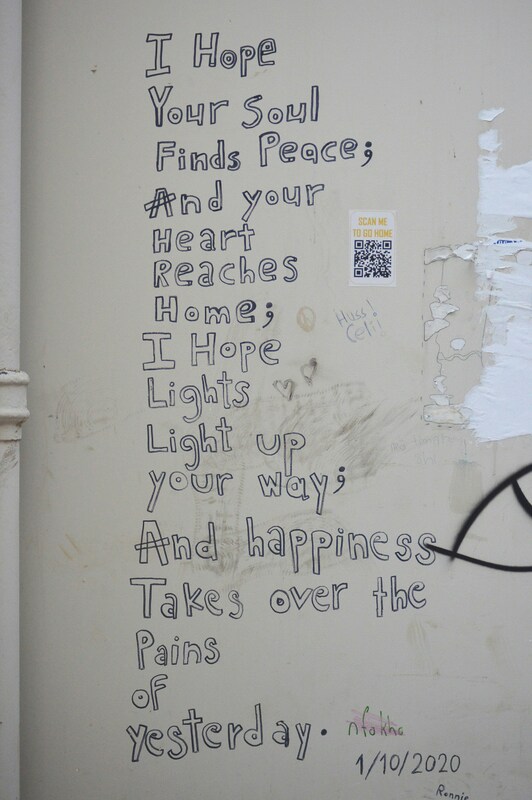 I Hope
Your Soul
Finds Peace;
And your
Heart
Reaches
Home;
I Hope
Lights
Light up
your way;
And happiness
Takes over the
Pains
of
yesterday.
nfakha
1/10/2020
Rennie
SCAN ME
TO GO HOME
Huss!
Celi!